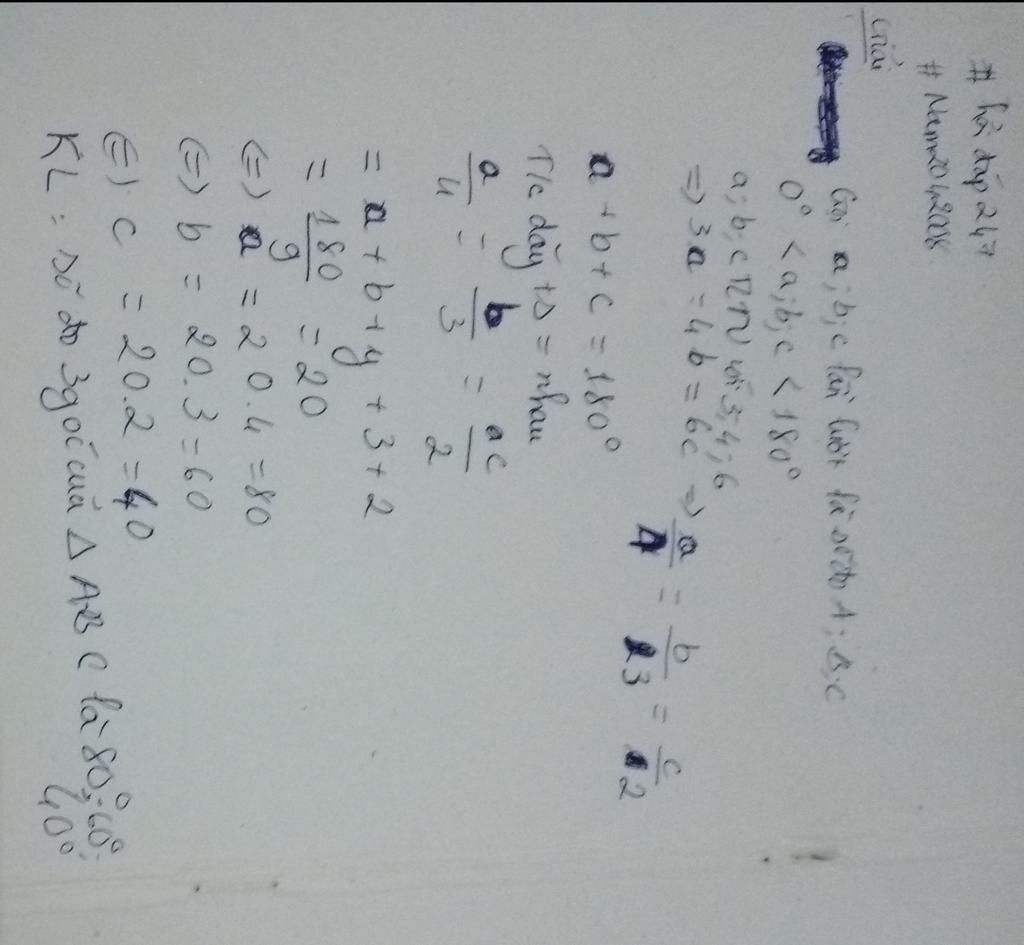 # hỏi đáp 247
# Nam2042008
Giải
Gọi a; b; c lần lượt là số đo A; B; C
0° < a; b; c < 180°
a; b; c TLN với 3; 4; 6
=> 3a = 4b = 6c => a/4 = b/3 = c/2
a + b + c = 180°
T/c dãy ts = nhau
a/4 = b/3 = c/2
= a + b + y + 3 + 2
= 180/9 = 20
(=) a = 20.4 = 80
(=) b = 20.3 = 60
(=) c = 20.2 = 40
KL: số đo 3 góc của Δ ABC là 80°; 60°;
40°